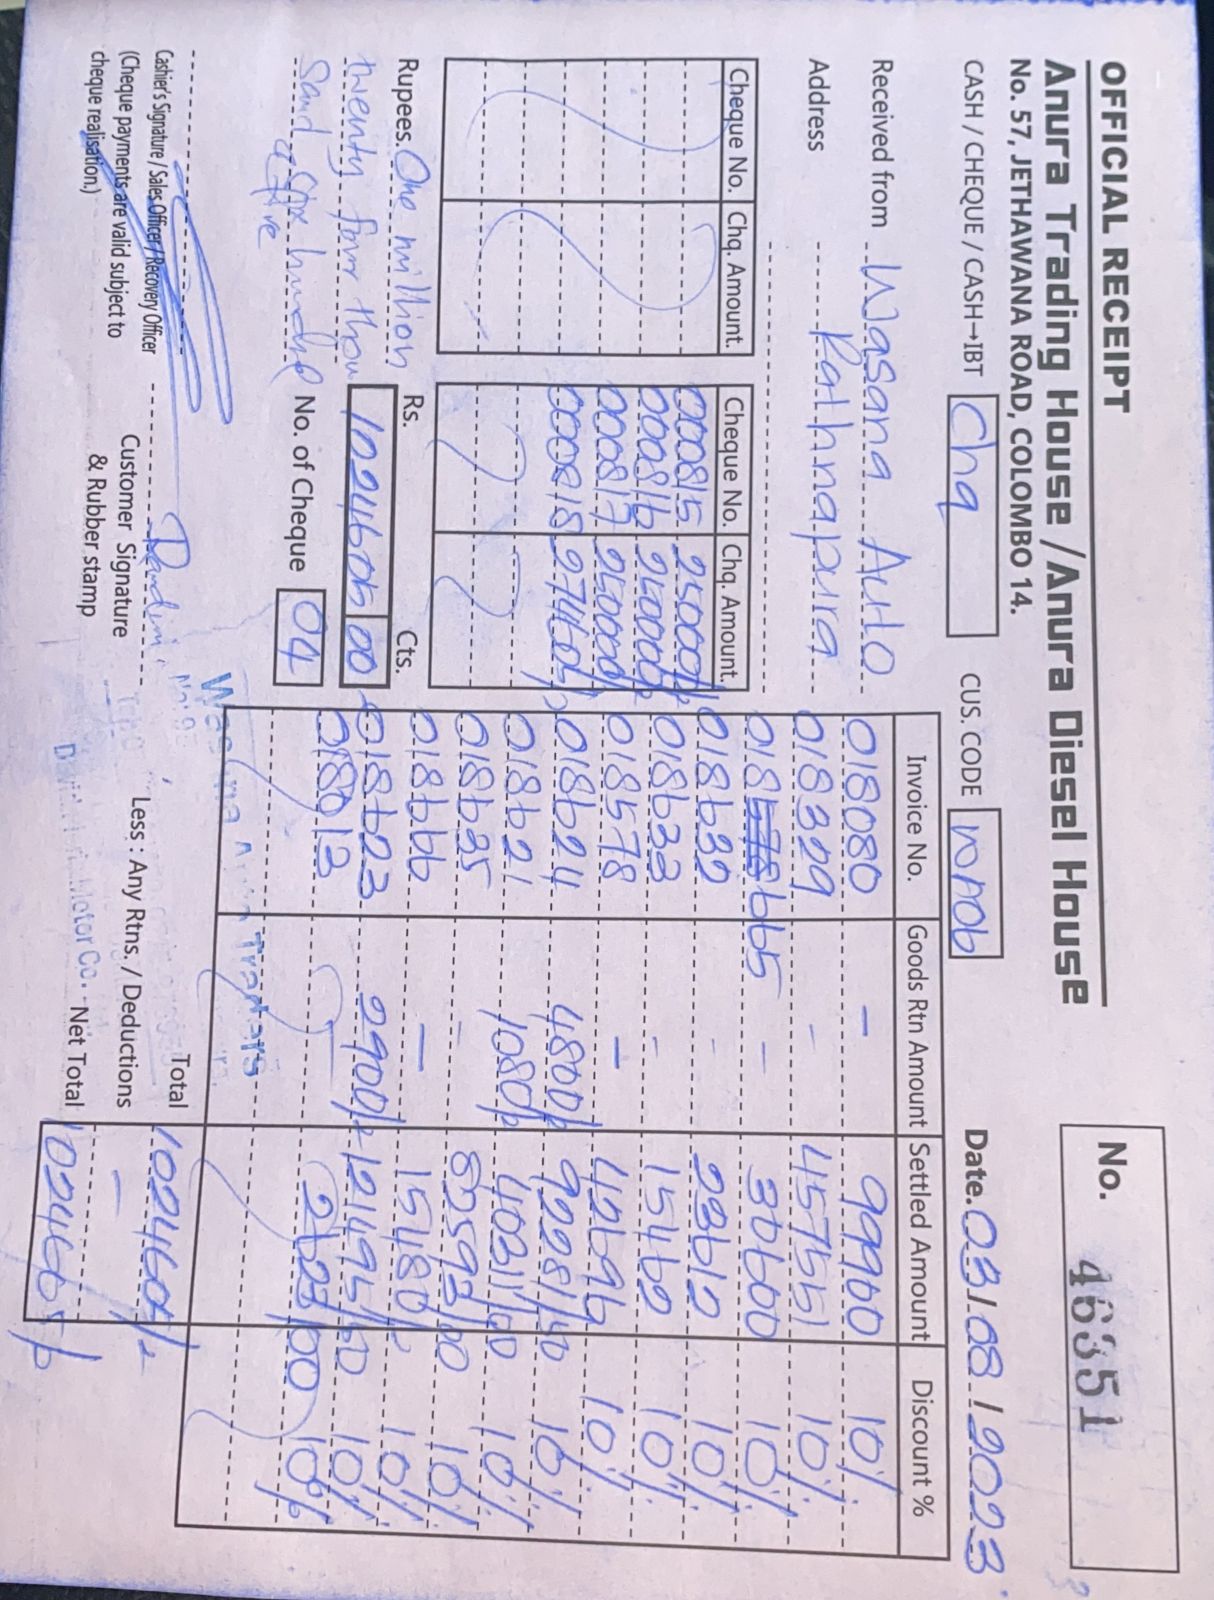 OFFICIAL RECEIPT
Anura Trading House / Anura Diesel House
No. 57, JETHAWANA ROAD, COLOMBO 14.
No. 46351
CASH / CHEQUE / CASH→IBT Chq CUS. CODE
Date. 03/08/2023
Received from Wasana Auto
Address Rathnapura
Cheque No. Chq. Amount. Cheque No. Chq. Amount.
000815 250000/-
000816 250000/-
000817 250000/-
000818 274605/-
Invoice No. Goods Rtn Amount Settled Amount Discount %
018080 - 99900 10%
018329 - 457551 10%
018578 665 - 30600 10%
018632 - 23612 10%
018633 - 15462 10%
018578 - 42696 10%
018624 4800/- 92281/50 10%
018621 1080/- 40311/00 10%
018635 - 82593/00 10%
018666 - 15480/- 10%
018623 2900/- 121495/50 10%
018013 2623/00 10%
Rupees. One million
twenty four thou
sand six hundred
& five
Rs. Cts.
1024605 00
No. of Cheque 04
Total 1024605/-
Less : Any Rtns. / Deductions -
Net Total 1024605/-
Cashier's Signature / Sales Officer / Recovery Officer
(Cheque payments are valid subject to
cheque realisation.)
Customer Signature
& Rubber stamp